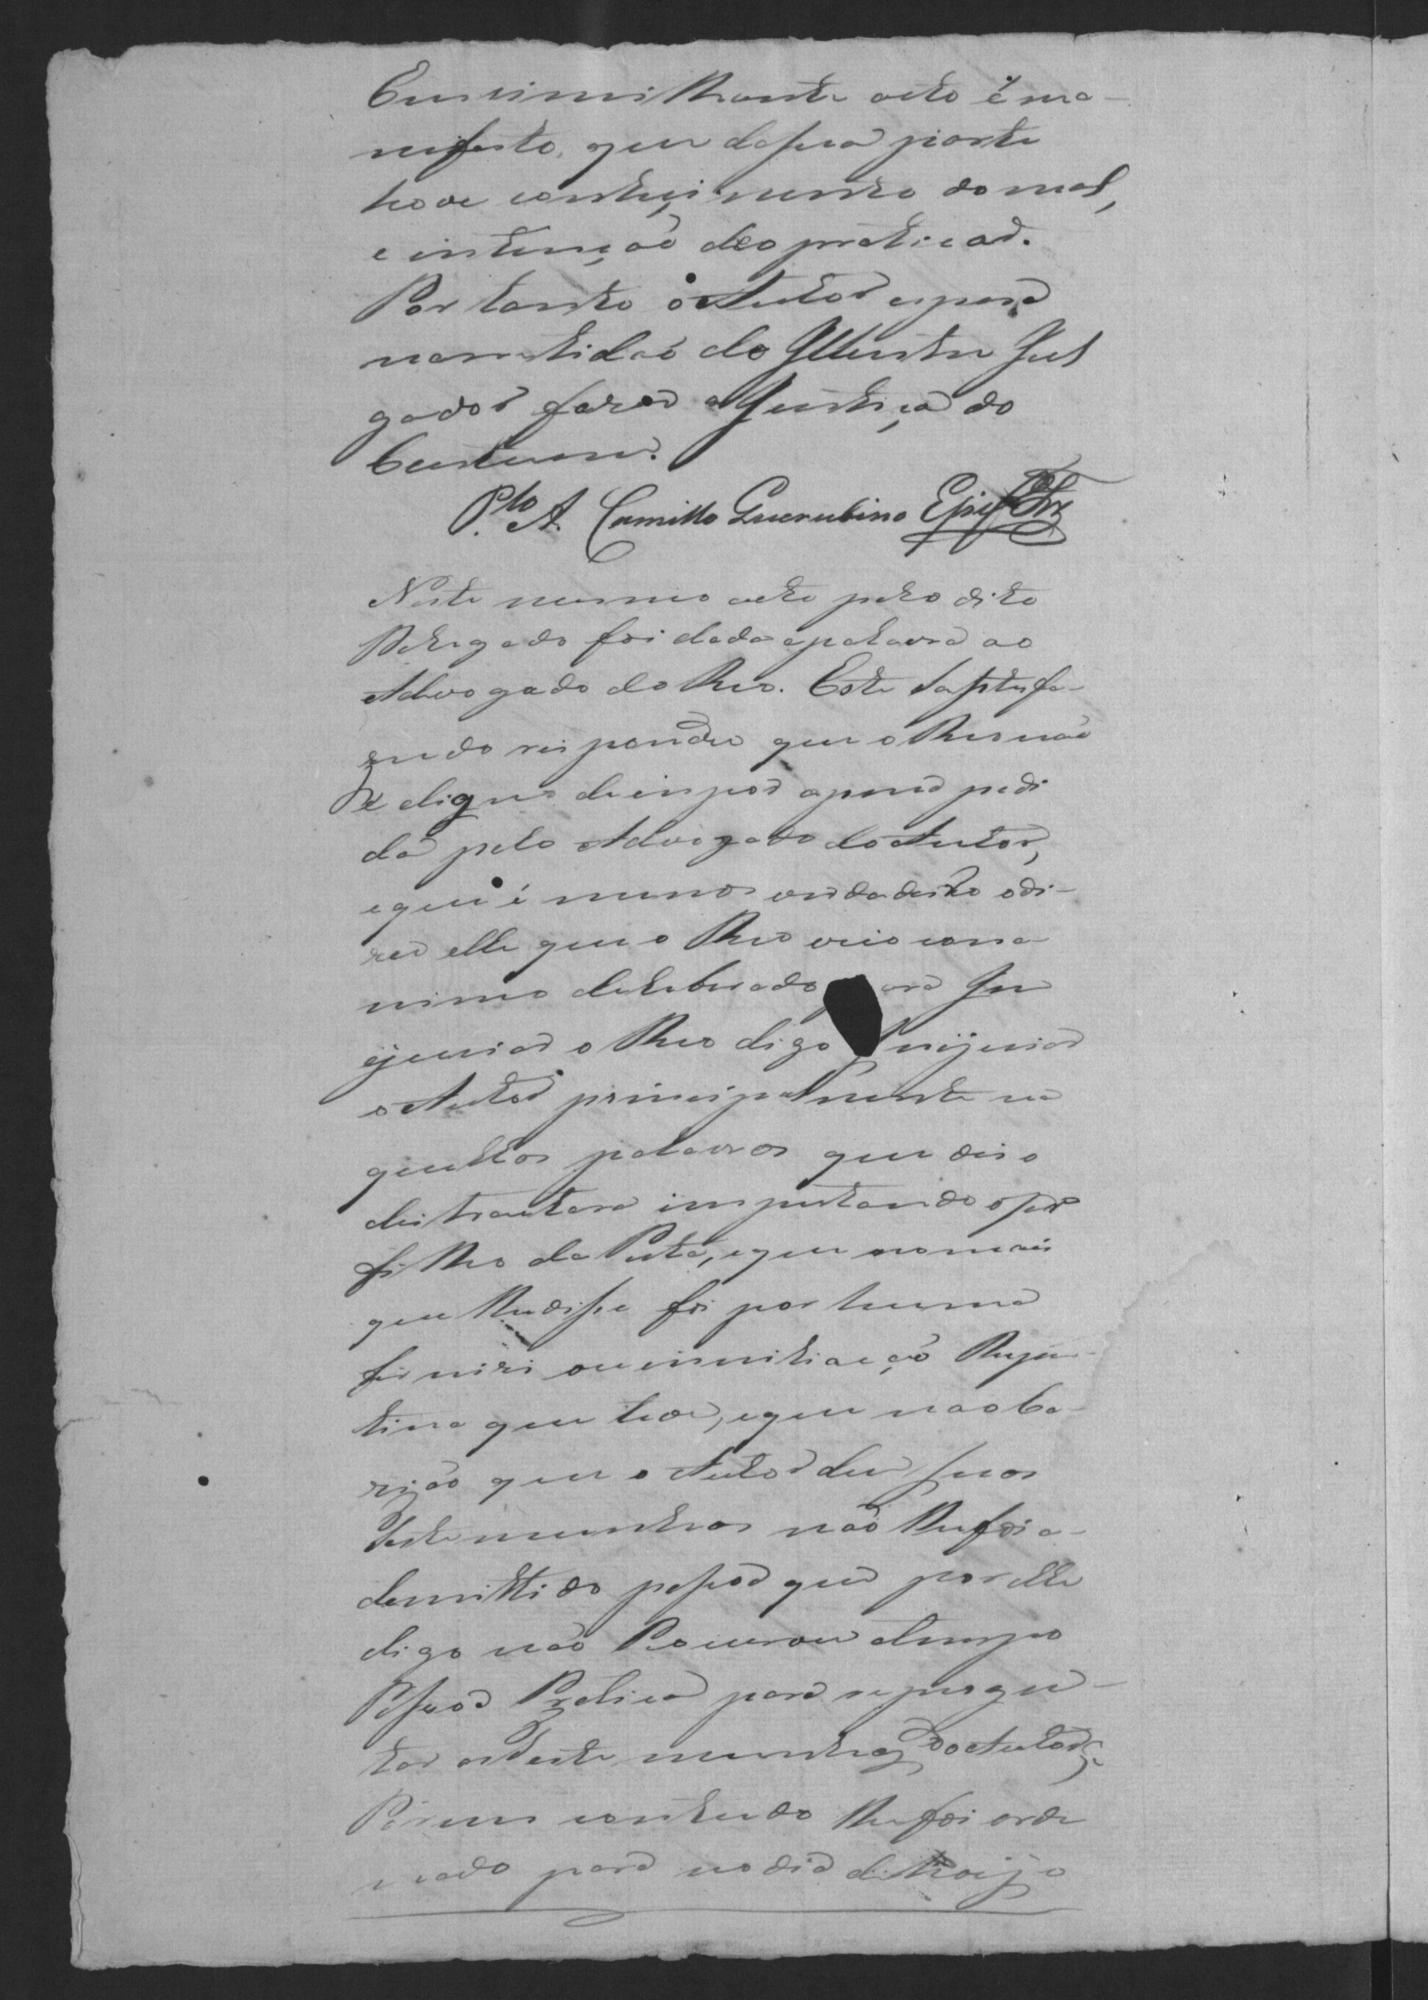 Em simithante acto é ma-
nifesto, que da sua parte
hove conheçimento do mal,
e intenção de o praticar.
Por tanto o Autor espera
na rectidaõ do Illustre Jul
gador fazer a Justiça do
Custume.
P.to A. Camillo Querubino
Neste mesmo acto pelo dito
Delegado foi dada apalavra ao
Advogado do Reo. Este satisfa-
zendo respondeo que o Reo não
é digno de impor apena pedi
da pelo Advogado do Autor,
e que é menos verdadeiro o di-
zer elle que o Reo veio com a
nimo deleberado para In
ijuriar o Reo digo Inijuriar
o Autor principalmente na
quellas palavras que diz o
destratara imputando o ser
filho da Puta, e que no mais
que lhe disse foi por huma
ou imitiacção Repen-
tina que teve, e que na oba-
rição que o Autor deu suas
Testemunhas não lhe foi a-
demittido pessoa que por elle
digo não Procurou atempo
Pessoa Pratica para repergun-
tar as testemunhas do Autor,
Porem contudo lhe foi orde
nado para no dia de hoije